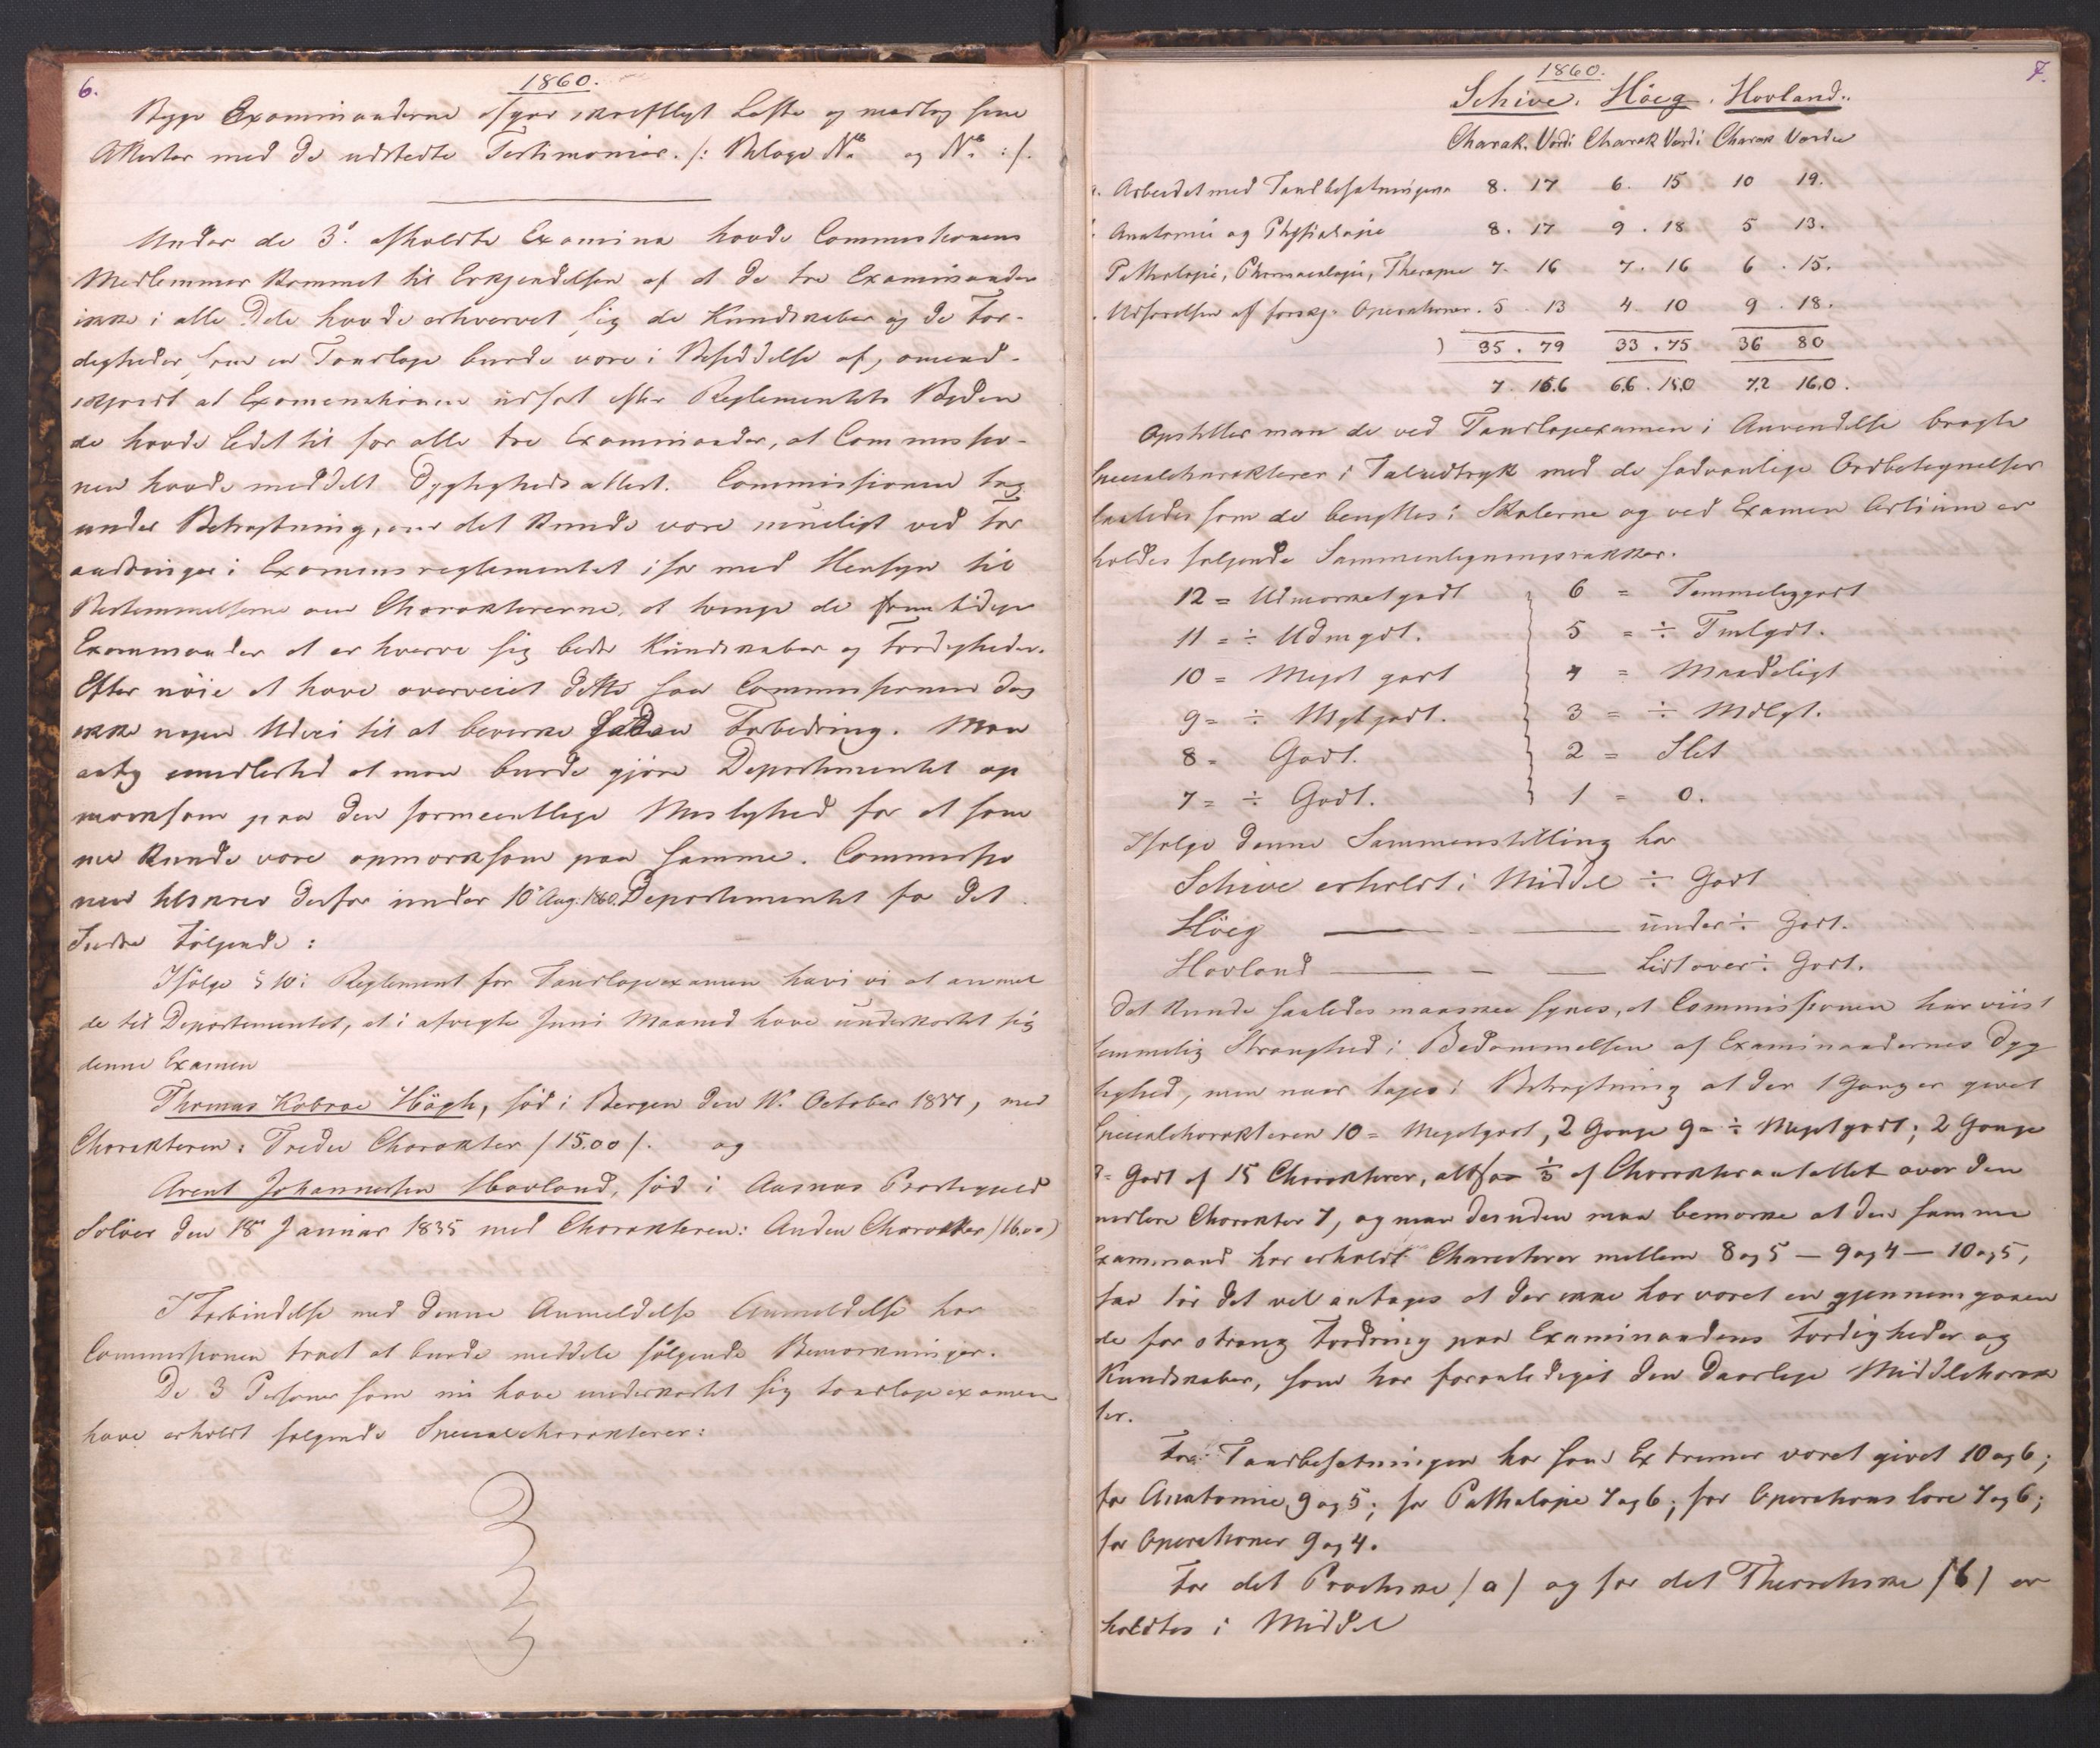 6.
1860.
Begge Examinanderne afgav skriftligt Løfte og modtog sine
Attester med de udstedte Testimonier. /: Bilage No og No :/.
Under de 3de afholdte Examina havde Commissionens
Medlemmer kommet til Erkjendelsen af at de tre Examinander
ikke i alle Dele havde erhvervet sig de Kundskaber og de Fær-
digheder, som en Tandlæge burde være i Besiddelse af, omend-
skjøndt at Examinationen udført efter Reglementets Bydende
havde ledet til for alle tre Examinander, at Commissio-
nen havde meddelt Dygtighedsattest. Commissionen tog
under Betragtning, om det kunde være muligt ved For
andringer i Examensreglementet især med Hensyn til
Bestemmelserne om Charaktererne, at tvinge de fremtidige
Examinander at erhverve sig bedre Kundskaber og Færdigheder.
Efter nöie at have overveiet dette saa Commissionen dog
ikke nogen Udvei til at bevirke sådan Forbedring. Man
antog imidlertid at man burde gjöre Departementet op
mærksom paa den formeentlige Mislighed for at som
me kunde være opmærksom paa samme. Commissio
nen tilskrev derfor under 10de Aug. 1860. Departementet for det
Indre Følgende:
Ifölge § 10 i Reglement for Tandlægeexamen have vi at anmel
de til Departementet, at i afvigte Juni Maaned have underkastet sig
denne Examen
Thomas Kobroe Högh, föd i Bergen den October, med
Charakteren: Tredie Charakter /15.00/. og
Arent Johannessen Hovland, föd i Aasnæs Præstegield
Solöer den 18de Januar 1835 med Charakteren: Anden Charakter /16.00/
I Forbindelse med denne Anmeldelse Anmeldelse har
Commissionen troet at burde meddele fölgende Bemærkninger.
De 3 Personer som nu have underkastet sig tandlægeexamen
have erholdt følgende Specialcharakterer:
7.
1860.
Schive. Höeg. Hovland..
Charak. Værdi Charak Værdi Charak Værdie
Arbeidet med Tandbesætningen 8. 17 6. 15 10 19.
Anatomie og Physiologie 8. 17 9. 18 5 13.
Pathologie, Pharmacologie, Therapie 7. 16 7. 16 6. 15.
Udførelsen af forskj. Operationer. 5. 13 4. 10 9. 18.
) 35. 79 33. 75 36 80
7. 15.6 6.6. 15.0 7.2 16.0.
Opstiller man de ved Tandlægexamen i Anvendelse bragte
Specialcharakterer i Taludtryk med de sædvanlige Ordbetegnelser
saaledes som de benyttes i Skolerne og ved Examen Artium er
holdes følgende Sammenligningsrækker.
12 = Udmærketgodt 6 = Temmeliggodt
11 = ÷ Udmgdt. 5 = ÷ Tmlgdt.
10 = Meget godt 4 = Maadeligt
9 = ÷ Mgtgodt. 3 = ÷ Mdlgt.
8 = Godt. 2 = Slet
7 = ÷ Godt. 1 = 0.
Ifølge denne Sammenstilling har
Schive erholdt i Middel ÷ Godt
Höeg — - — under ÷ Godt.
Hovland — - — Lidt over ÷ Godt.
Det kunde saaledes maaskee synes, at Commissionen har viist
temmelig Strenghed i Bedømmelsen af Examinandernes Dyg
tighed, men naar tages i Betragtning at der 1 Gang er givet
Specialcharakteren 10 = Megetgodt, 2 Gange 9 = ÷ Megetgodt; 2 Gange
8 = Godt af 15 Charakterer, altsaa 1/3 af Charakterantallet over den
midlere Charakter 7, og man desuden maa bemærke at den samme
Examinand har erholdt Charakterer mellem 8 og 5 — 9 og 4 — 10 og 5,
saa tör det vel antages at der ikke har været en gjennemgaaen
de for streng Fordring paa Examinandens Færdigheder og
Kundskaber, som har foranlediget den daarlige Middelcharak
ter.
For Tandbesætningen har som Extremer været givet 10 og 6;
for Anatomie, 9 og 5; for Pathologie 7 og 6; for Operations lære 7 og 6;
for Operationer 9 og 4.
For det Practiske /a/ og for det Theoretiske /b/ er
holdtes i Middel